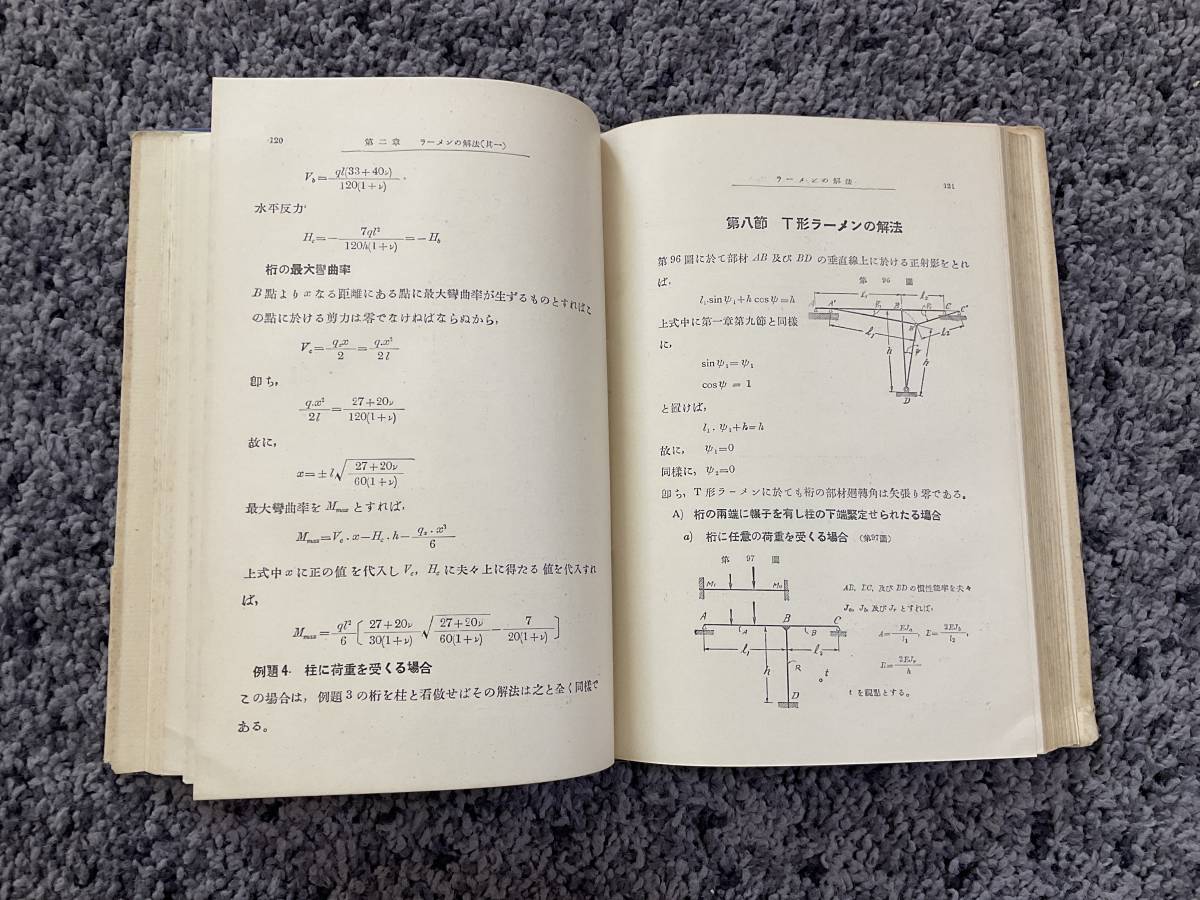 120 第二章 ラーメンの解法(其一)
V_b = ql(33+40ν) / 120(1+ν).
水平反力
H_c = − 7ql² / 120h(1+ν) = −H_b
桁の最大彎曲率
B點より x なる距離にある點に最大彎曲率が生ずるものとすればこ
の點に於ける剪力は零でなけねばならぬから,
V_c = q_x x / 2 = q.x² / 2l
卽ち,
q.x² / 2l = 27+20ν / 120(1+ν)
故に,
x = ± l √ 27+20ν / 60(1+ν)
最大彎曲率を M_max とすれば,
M_max = V_c · x − H_c · h − q_x · x³ / 6
上式中 x に正の値を代入し V_c, H_c に夫々上に得たる値を代入すれ
ば,
M_max = ql² / 6 [ 27+20ν / 30(1+ν) √ 27+20ν / 60(1+ν) − 7 / 20(1+ν) ]
例題4. 柱に荷重を受くる場合
この場合は, 例題3の桁を柱と看倣せばその解法は之と全く同様で
ある。
ラーメンの解法 121
第八節 T形ラーメンの解法
第96圖に於て部材 AB 及び BD の垂直線上に於ける正射影をとれ
ば.
l₁.sinψ₁+h cosψ=h
上式中に第一章第九節と同樣
に,
sinψ₁=ψ₁
cosψ = 1
と置けば,
l₁. ψ₁+h=h
故に, ψ₁=0
同樣に, ψ₂=0
卽ち, T形ラーメンに於ても桁の部材廻轉角は矢張り零である。
第 96 圖
l₁ l₂
A A' B C C'
l₁ l₂
h ψ h
D
A) 桁の兩端に輾子を有し柱の下端緊定せられたる場合
a) 桁に任意の荷重を受くる場合 (第97圖)
第 97 圖
A B C
A B
l₁ l₂
h R t
D
AB, BC, 及び BD の慣性能率を夫々
J_a, J_b 及び J_r とすれば,
A= 2EJ_a / l₁, B= 2EJ_b / l₂,
R= 2EJ_r / h
t を觀點とする。